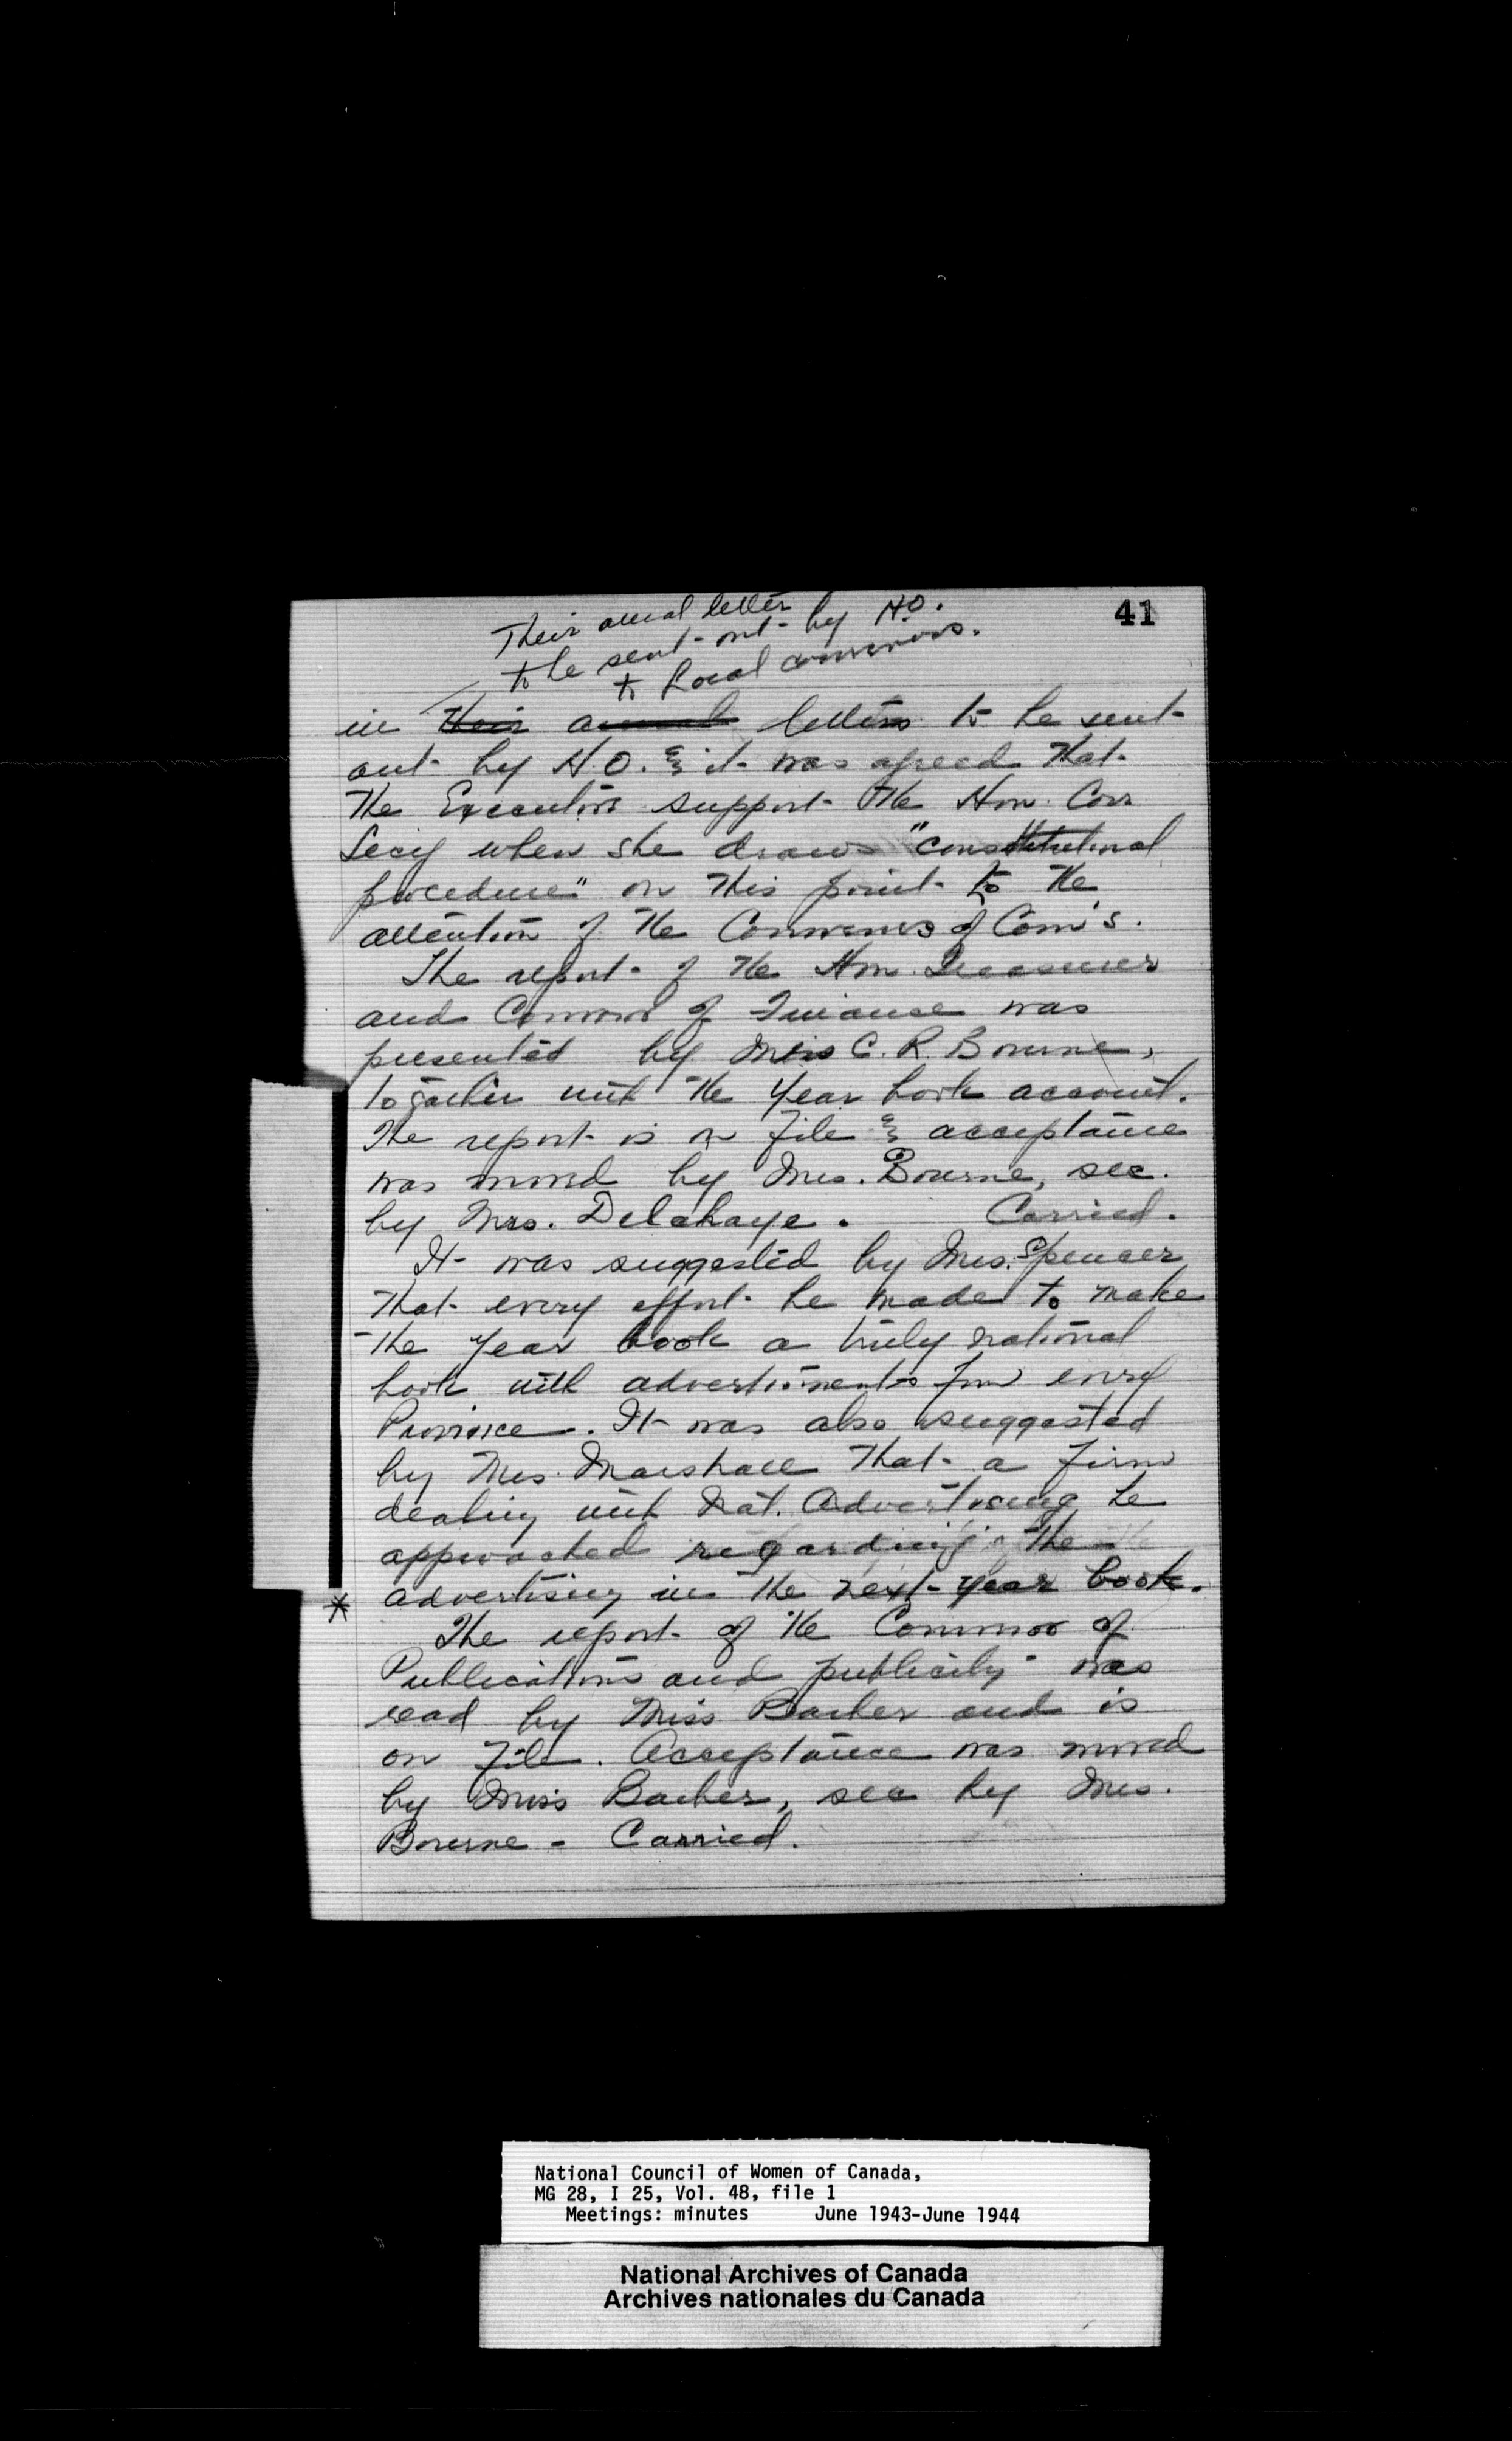 41
Their annual letter
to be sent out by H.O.
to Local convenors.
in their annual letters to be sent
out by H.O. & it was agreed that
the Executive support the Hon. Corr
Secy when she draws "constitutional
procedure" on this point to the
attention of the Convenors of Com's.
The report of the Hon. Treasurer
and Convenor of Finance was
presented by Miss C. R. Bourne,
together with the Year book account.
The report is on file & acceptance
was moved by Mrs. Bourne, sec.
by Mrs. Delahaye. Carried.
It was suggested by Mrs. Spencer
that every effort be made to make
the year book a truly national
book with advertisments from every
Province. It was also suggested
by Mrs. Marshall that a firm
dealing with Nat. Advertising be
approached regarding the
* advertising in the next year book.
The report of the Convenor of
Publications and publicity was
read by Miss Barber and is
on file. Acceptance was moved
by Miss Barber, sec by Mrs.
Bourne - Carried.
National Council of Women of Canada,
MG 28, I 25, Vol. 48, file 1
Meetings: minutes June 1943-June 1944
National Archives of Canada
Archives nationales du Canada